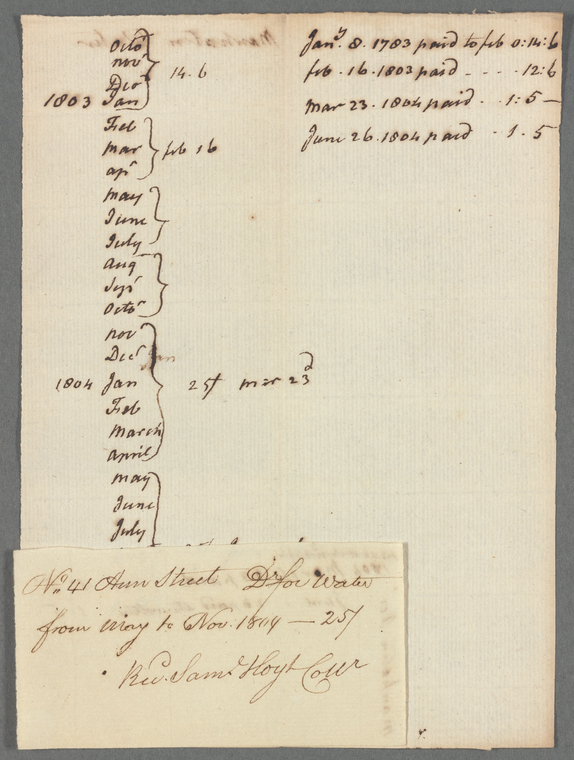 Octor
novr
Decr
1803 Jan
14.6
Feb
mar
apr
feb 16
may
June
July
aug
Sepr
Octor
novr
Decr Jan
1804 Jan
Feb
March
april
25/ mar 23d
may
June
July
Jany. 8. 1783 paid to feb 0:14:6
feb. 16. 1803 paid - - - - 12:6
mar 23. 1804 paid - - 1:5 —
June 26. 1804 paid - 1. 5
No. 41 Ann Street Dr. for Water
from May to Nov. 1804 — 25/
Recd. Saml Hoyt Collr